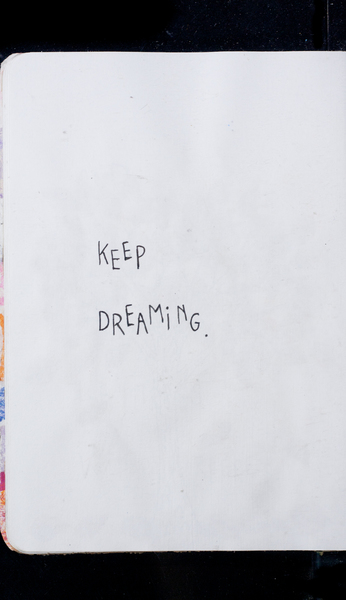 KEEP
DREAMiNG.